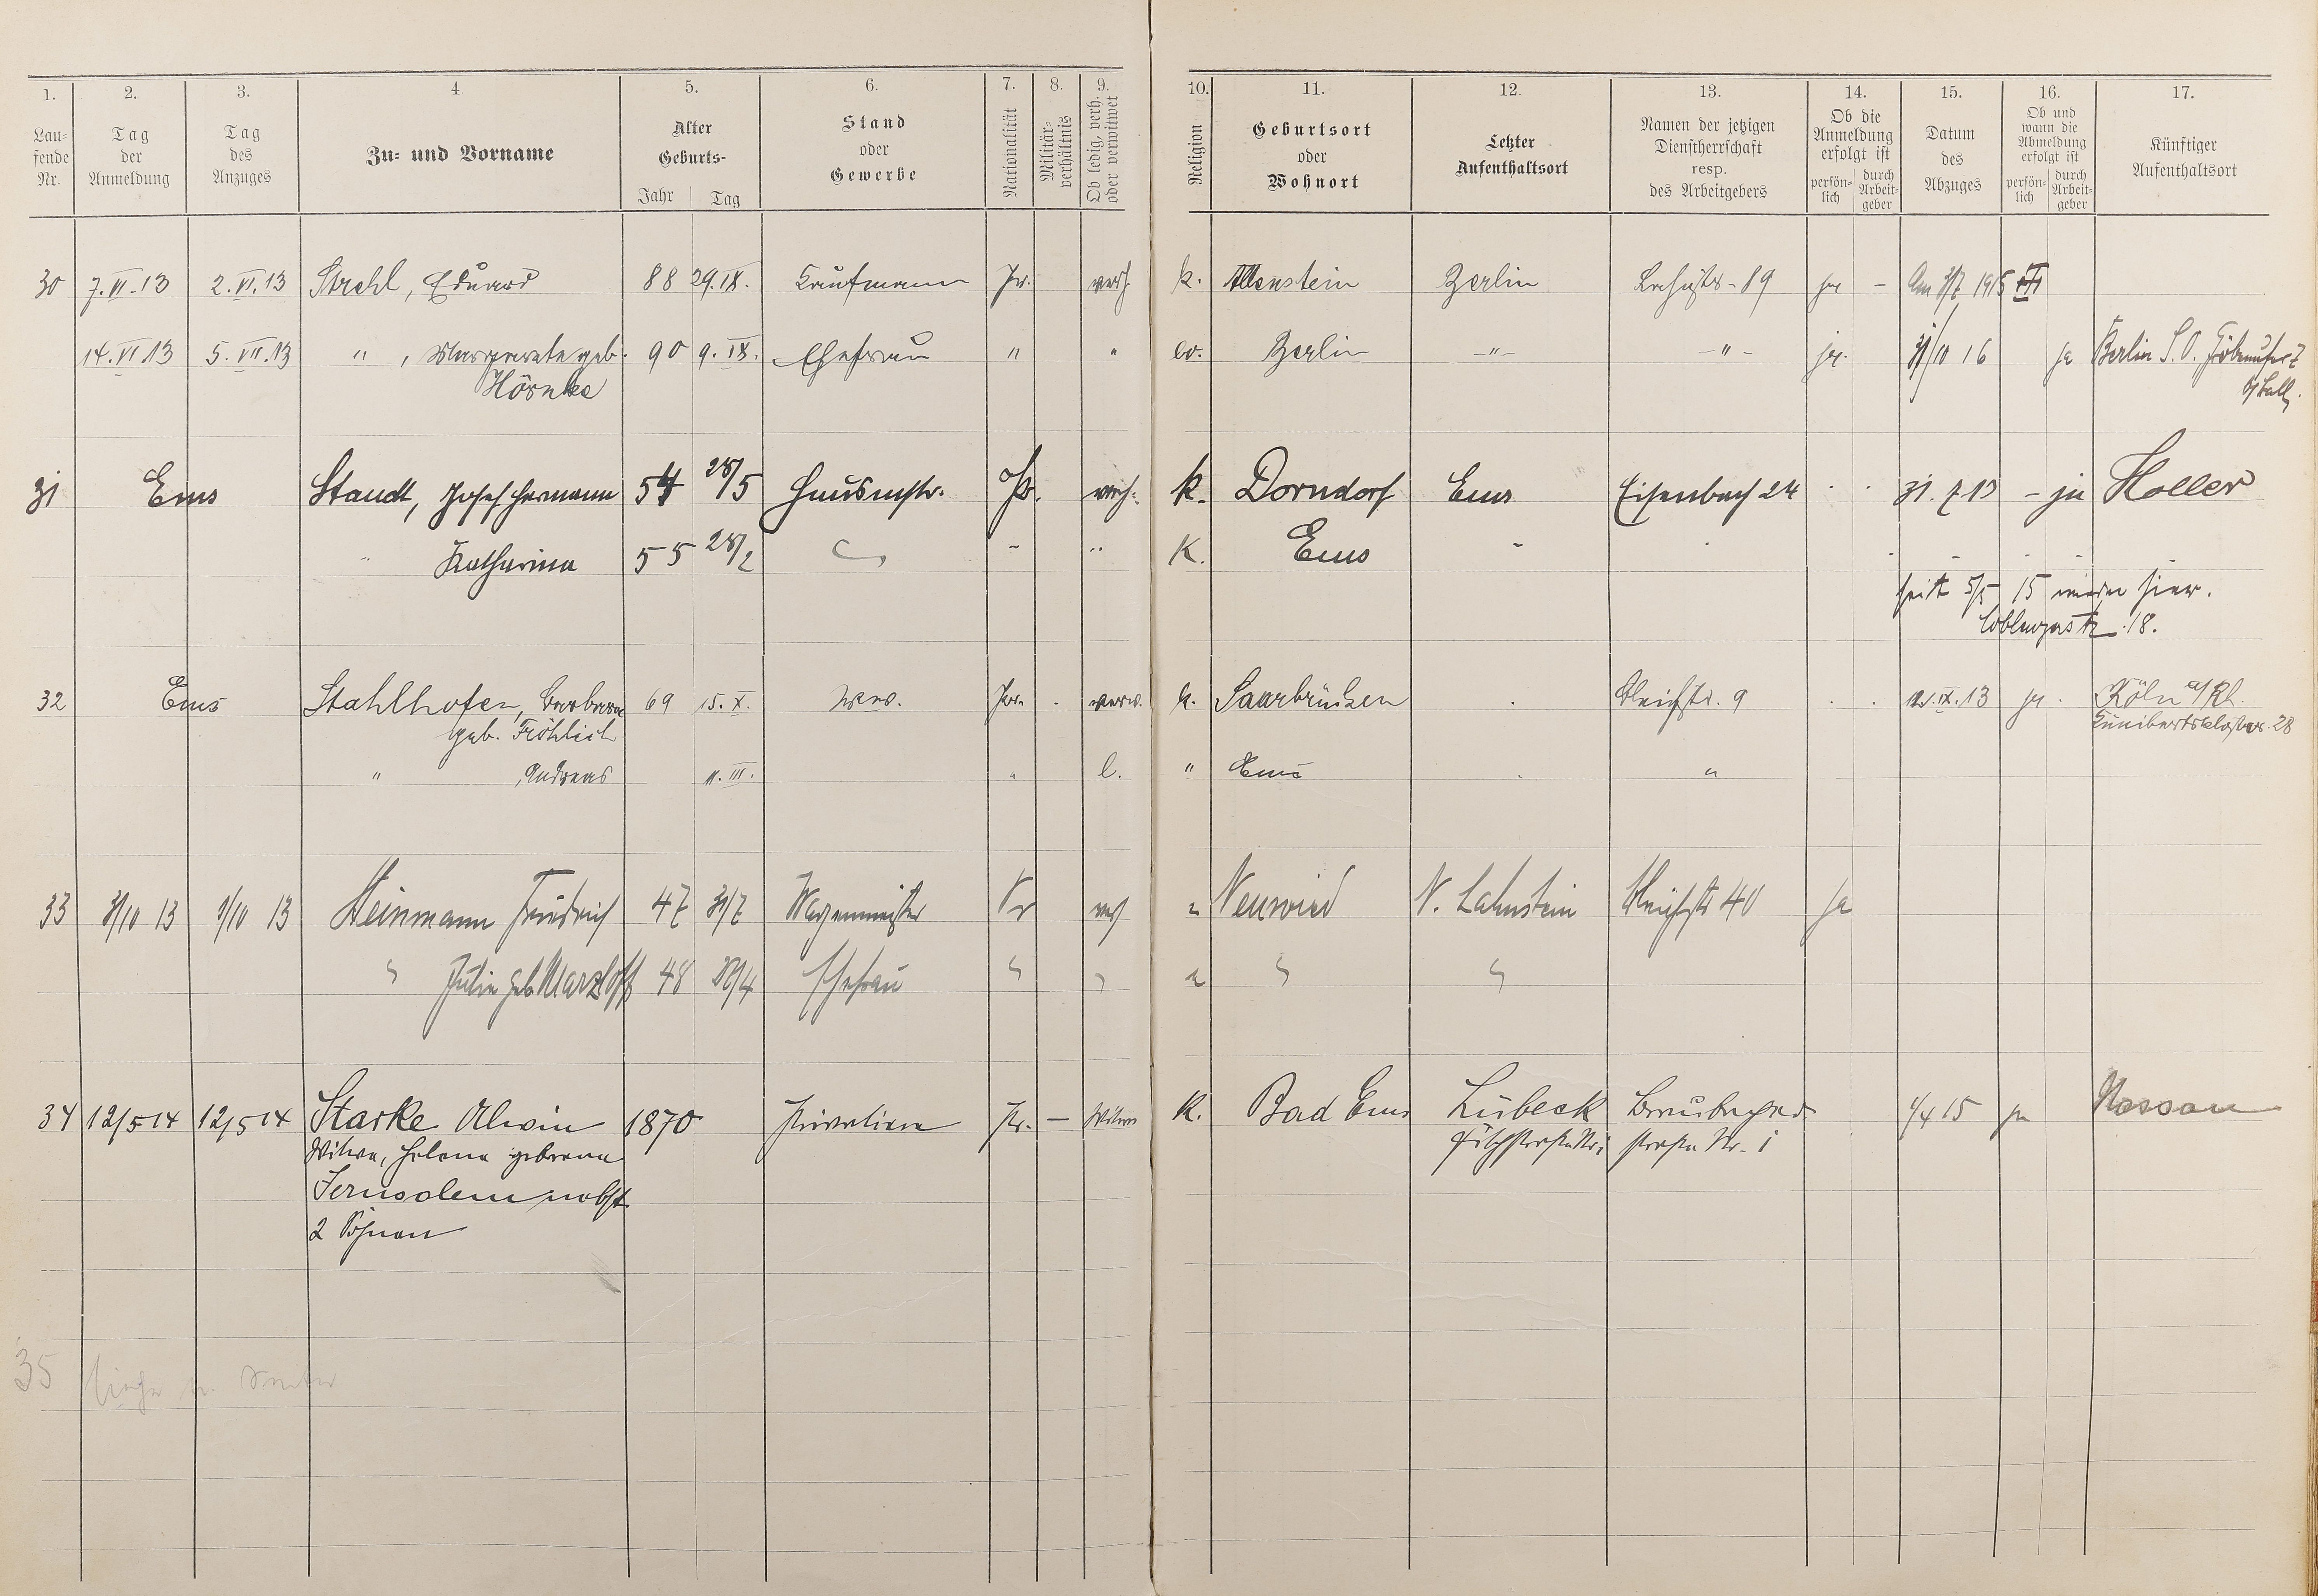 1. 2. 3. 4. 5. 6. 7. 8. 9. 10. 11. 12. 13. 14. 15. 16. 17.
Lau-
fende
Nr.
Tag
der
Anmeldung
Tag
des
Anzuges
Zu- und Vorname
Alter
Geburts-
Jahr Tag
Stand
oder
Gewerbe
Nationalität
Militär-
verhältnis
Ob ledig, verh.
oder verwitwet
Religion
Geburtsort
oder
Wohnort
Letzter
Aufenthaltsort
Namen der jetzigen
Dienstherrschaft
resp.
des Arbeitgebers
Ob die
Anmeldung
erfolgt ist
persön-
lich
durch
Arbeit-
geber
Datum
des
Abzuges
Ob und
wann die
Abmeldung
erfolgt ist
persön-
lich
durch
Arbeit-
geber
Künftiger
Aufenthaltsort
30 7.VI.13 2.VI.13 Strehl, Eduard 88 29.IX. Kaufmann Pr. verh. k. Allenstein Berlin 89 ja – Am 3/7 1915
14.VI 13 5.VII.13 " , Margarete geb. 90 9.IX. Ehefrau " " ev. Berlin –"– –"– ja. 31/10 16 ja Berlin S.O.
Hörnke
31 Ems Staudt, Josef Hermann 54 28/5 Hausmstr. Pr. verh. k. Dorndorf Ems Eisenbach 24 31.7 13 – ja Holler
" Katharina 55 28/2 " " K. Ems "
seit 5/5 15 wieder hier.
Coblenzerstr. 18.
32 Ems Stahlhofen, Barbara 69 15.X. Wwe. Pr. verw. k. Saarbrücken Bleichstr. 9 IX.13 ja Köln a/Rh.
geb. Fröhlich Kunibertskloster 28
" , Andreas 11.III. " l. " Ems "
33 3/10 13 1/10 13 Steinmann Friedrich 47 31/7 Wagenmeister Pr verh Neuwied N. Lahnstein Bleichstr 40 ja
" Julie geb Marzloff 48 /4 Ehefrau " " " "
34 12/5 14 12/5 14 Starke Alwin 1870 Privatiere Pr. – Witwe k. Bad Ems Lübeck Braubacher- 1/4 15 ja Nassau
Witwe, Helene geborene straße Nr. 1
Jerusalem nebst
2 Söhnen
35 siehe